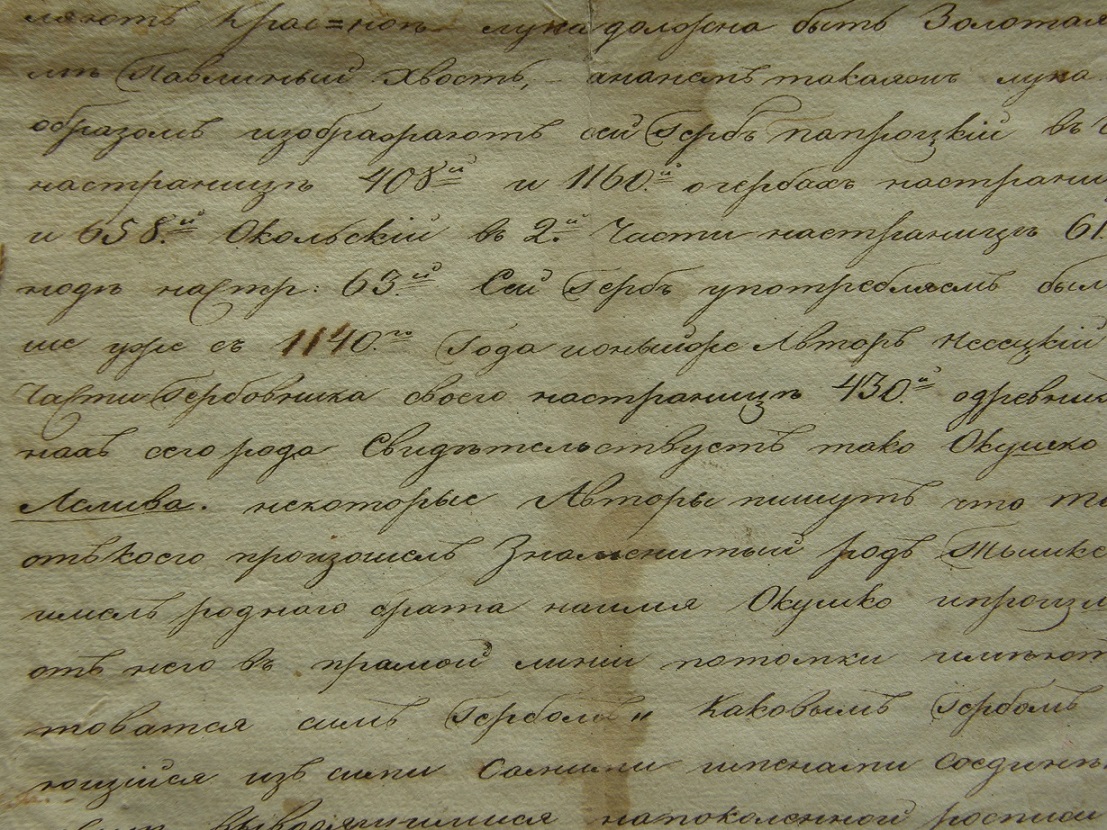 ляютъ Крас=номъ луна должна быть Золотая
Павлиный хвостъ, – анаметъ такаяжъ луна
образомъ изображаютъ сей Гербъ папроцкій въ
настраницѣ 408.й и 1160.й огербахъ настрани
и 658.й Окольскій въ 2.й Части настраницѣ 61.
подъ настр: 63.й Сей Гербъ употребляемъ был
ше уже съ 1140.го Года ионыйже Авторъ Несецкій
Части Гербовника своего настраницѣ 430.й одревнихъ
нахъ сего рода Свидѣтельствуетъ тако Окушко
Лелива. некоторые Авторы пишутъ что то
отъкоего произошелъ Знаменитый родъ Тышке
имелъ роднаго брата наимя Окушко ипроизш
отъ него въ прамой линіи потомки имѣют
товатся симъ Гербомъ „ Каковымъ Гербомъ
ющійся изъ сими Самими имѣнами соединен
напоколенной росписи